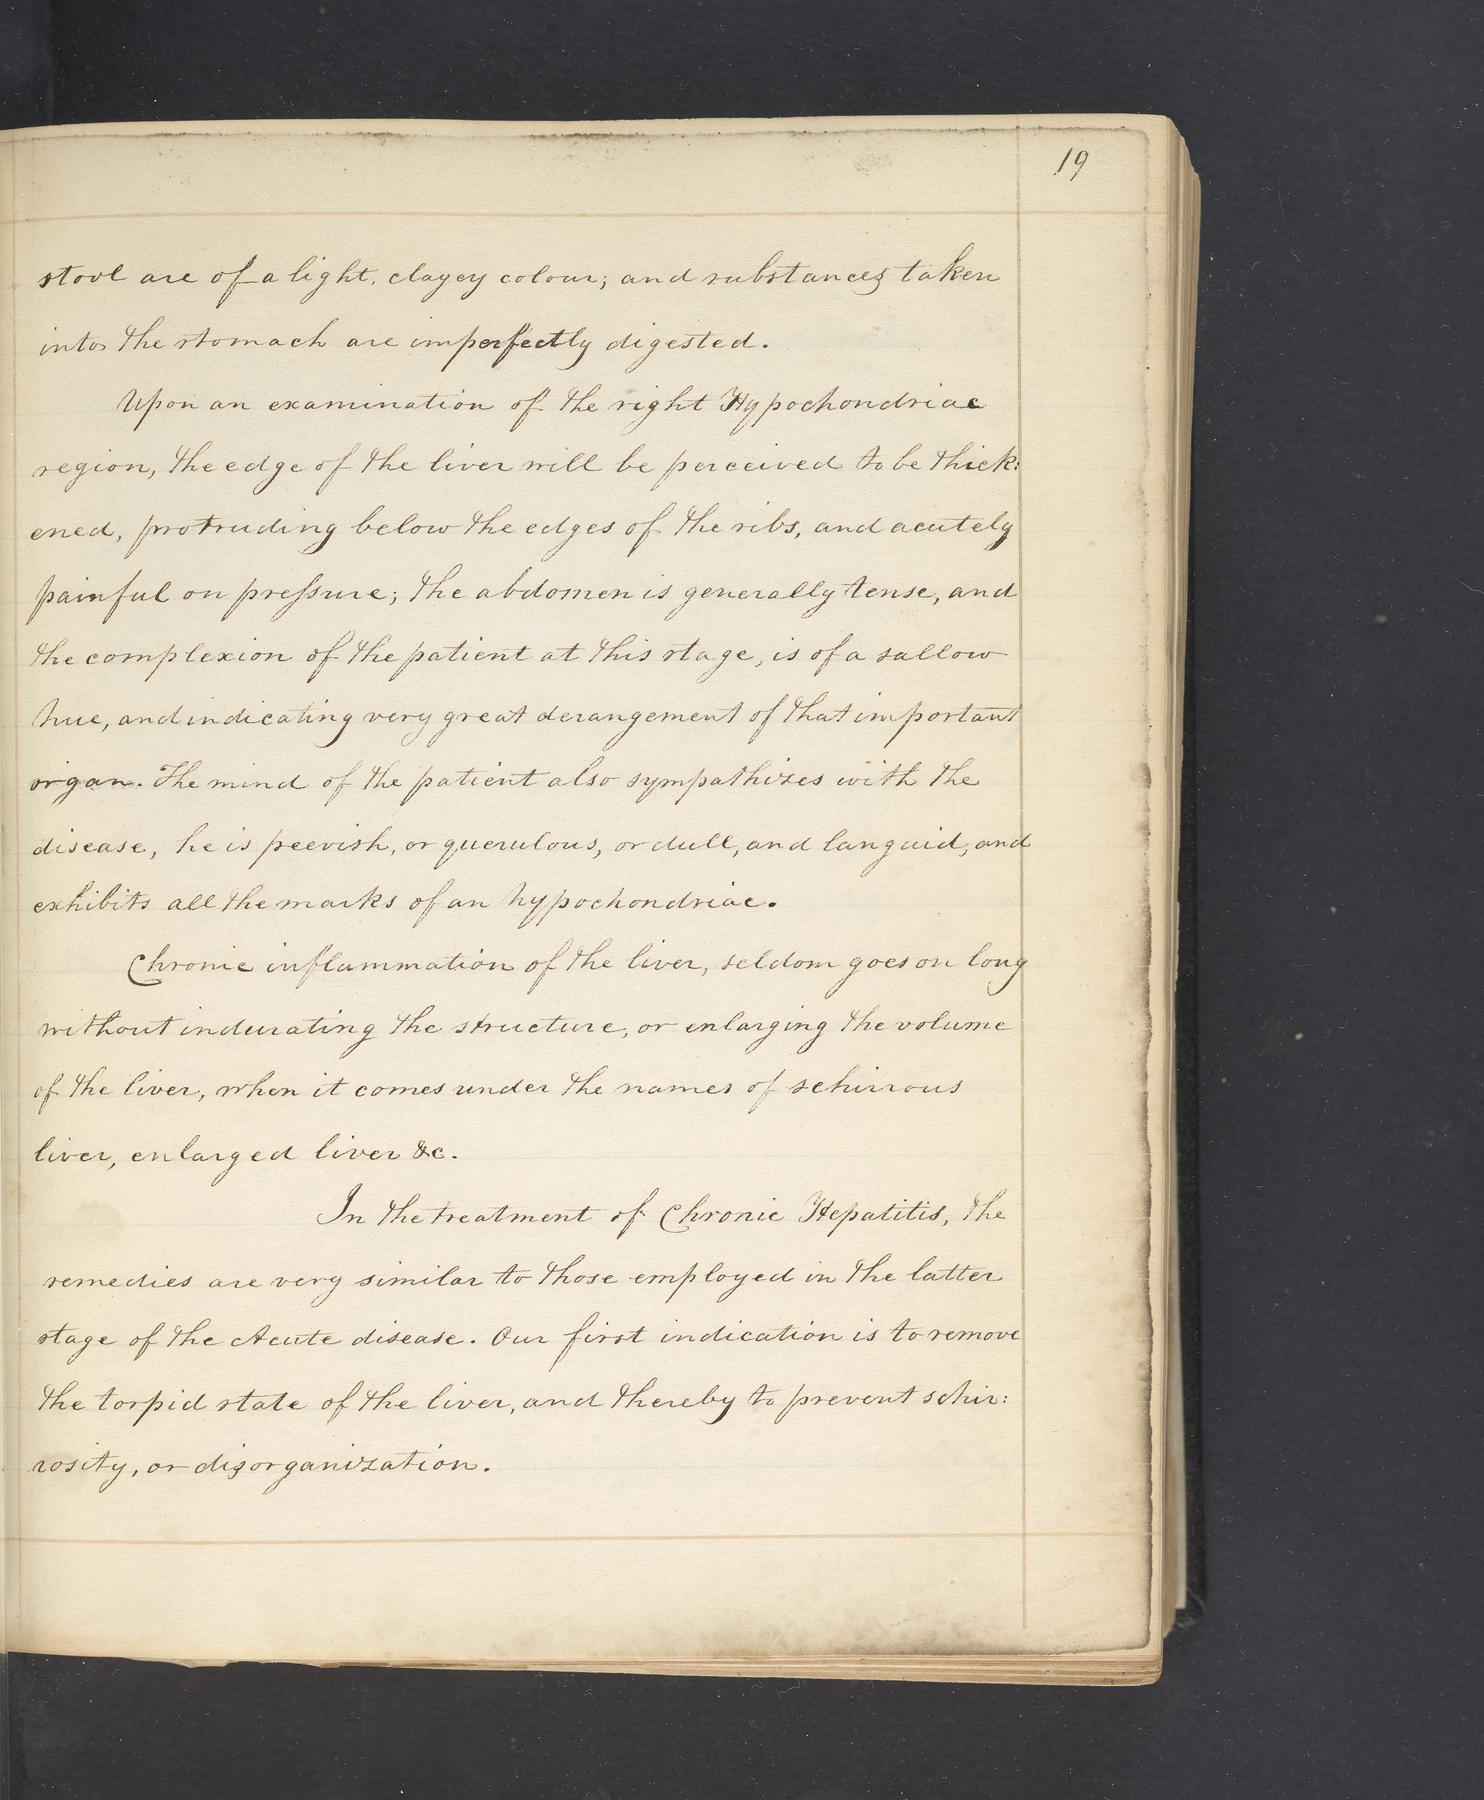 19
stool are of a light, clayey colour; and substances taken
into the stomach are imperfectly digested.
Upon an examination of the right Hypochondriac
region, the edge of the liver will be perceived to be thick:
ened, protruding below the edges of the ribs, and acutely
painful on pressure; the abdomen is generally tense, and
the complexion of the patient at this stage, is of a sallow
hue, and indicating very great derangement of that important
organ. The mind of the patient also sympathizes with the
disease, he is peevish, or querulous, or dull, and languid, and
exhibits all the marks of an hypochondriac.
Chronic inflammation of the liver, seldom goes on long
without indurating the structure, or enlarging the volume
of the liver, when it comes under the names of schirrous
liver, enlarged liver &c.
In the treatment of Chronic Hepatitis, the
remedies are very similar to those employed in the latter
stage of the Acute disease. Our first indication is to remove
the torpid state of the liver, and thereby to prevent schir:
rosity, or disorganization.